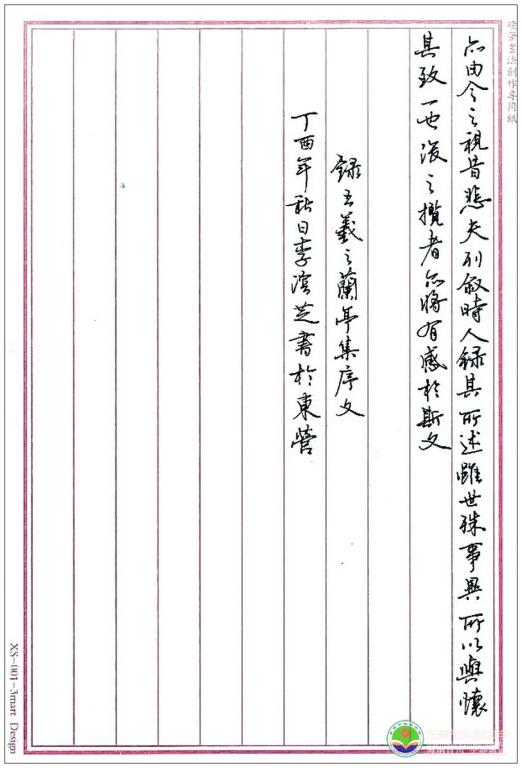 亦由今之視昔悲夫列敘時人録其所述雖世殊事異所以興懷
其致一也後之攬者亦將有感於斯文
録王羲之蘭亭集序文
丁酉年秋日李濱芝書於東營
XS-001-3mart Design